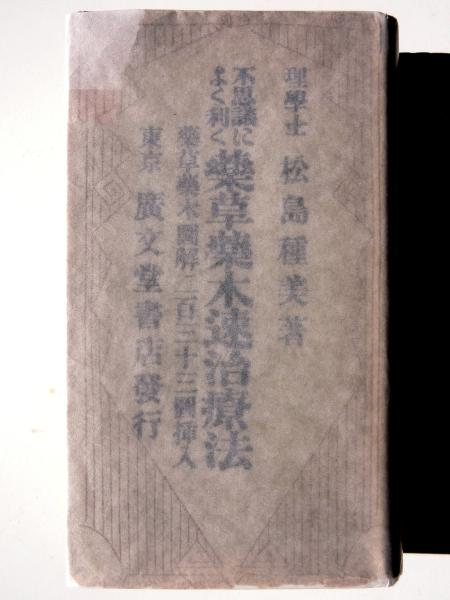 理學士 松島種美著
不思議に
よく利く
藥草藥木速治療法
藥草藥木圖解二百三十三圖揷入
東京 廣文堂書店發行